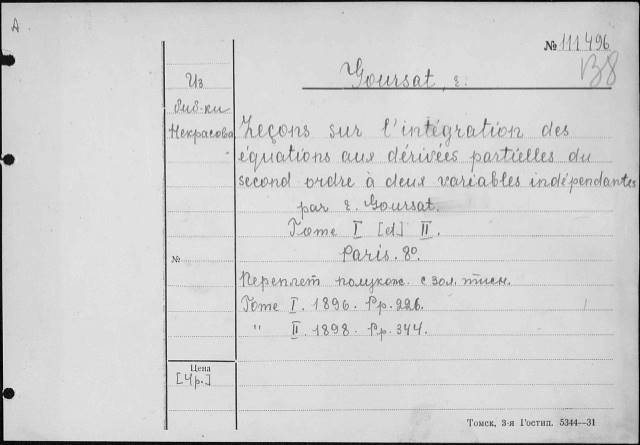 A
№ 111.496
В8
Goursat, E.
Из
биб-ки
Некрасова
Leçons sur l'intégration des
équations aux dérivées partielles du
second ordre à deux variables indépendantes
par E. Goursat.
Tome I [et] II.
Paris. 8º.
№
Переплет полукож. с зол. тисн.
Tome I. 1896. Pp. 226.
" II. 1898. Pp. 344.
Цена
[4р.]
Томск, 3-я Гостип. 5344—31